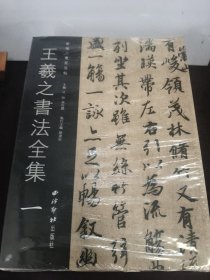 王羲之書法全集
一
西泠印社出版社
有峻領茂林脩竹又有清流
湍暎帶左右引以為流觴
列坐其次雖無絲竹管弦
盛一觴一詠亦足以暢叙幽